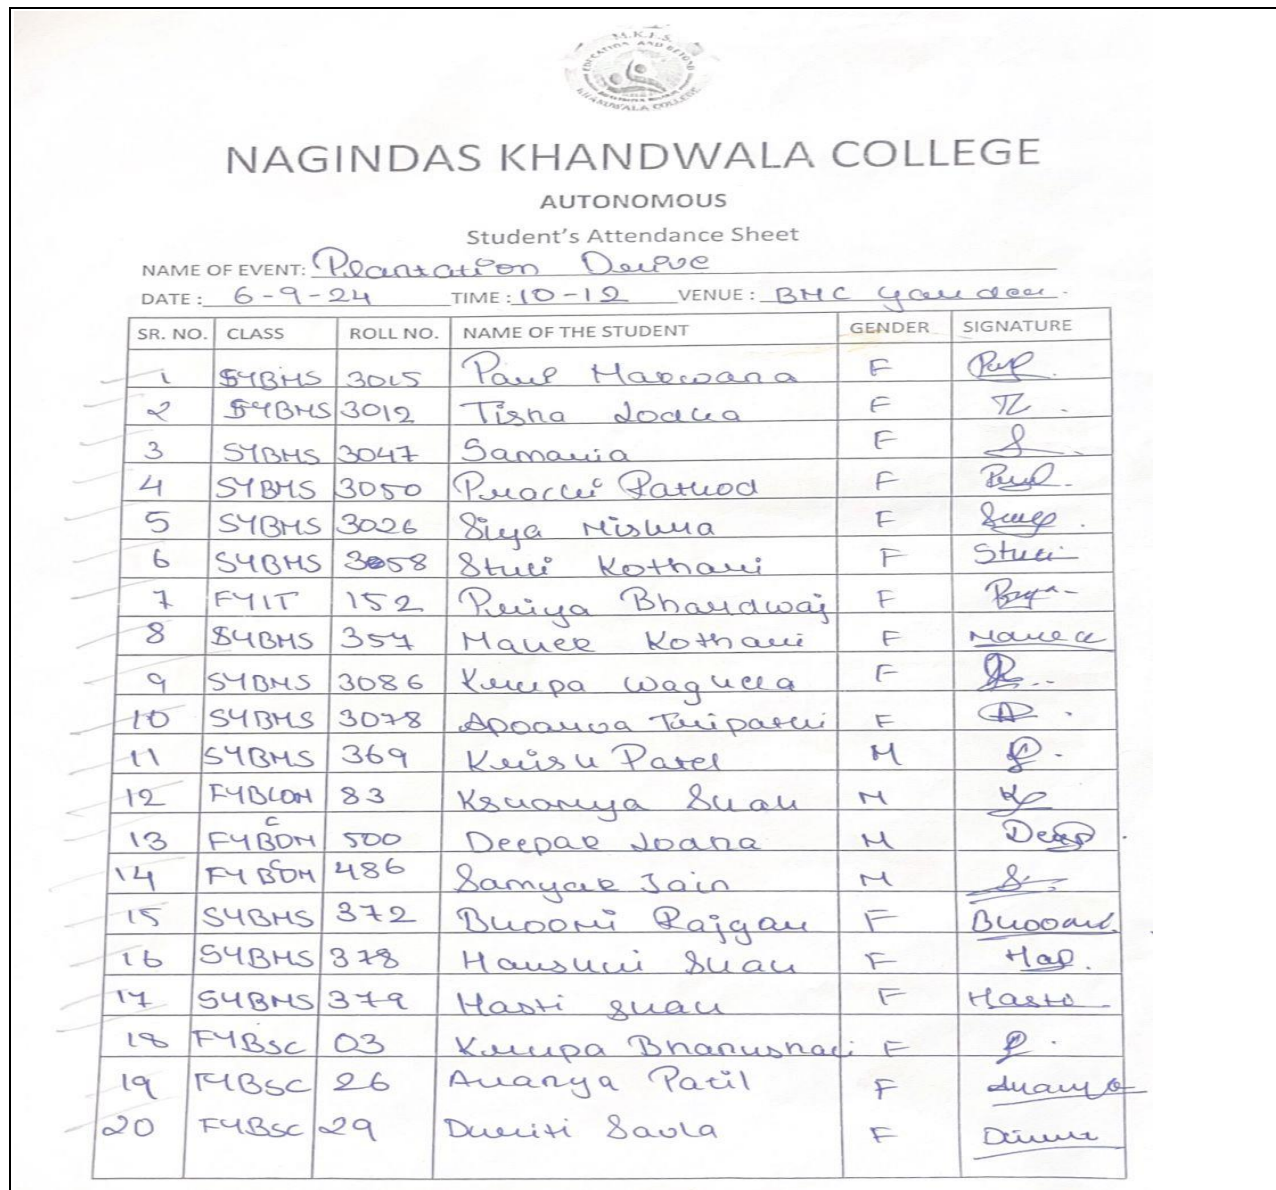 M.K.E.S.
EDUCATION AND BEYOND
KHANDWALA COLLEGE
NAGINDAS KHANDWALA COLLEGE
AUTONOMOUS
Student's Attendance Sheet
NAME OF EVENT: Plantation Drive
DATE: 6-9-24 TIME: 10-12 VENUE: BMC garden.
SR. NO. CLASS ROLL NO. NAME OF THE STUDENT GENDER SIGNATURE
1 SYBMS 3015 Makwana F
2 SYBMS 3012 Tisha Lodha F
3 SYBMS 3047 F
4 SYBMS 3050 Prachi Rathod F
5 SYBMS 3026 Siya Mishra F
6 SYBMS 3058 Stuti Kothari F Stuti
7 FYIT 152 Priya Bhardwaj F
8 SYBMS 357 Kothari F
9 SYBMS 3086 Krupa Waghela F
10 SYBMS 3078 Apoorva Tripathi F
11 SYBMS 369 Krish Patel M
12 FYBCOM 83 Shah M
13 FYBCOM 500 Deepak M
14 FYBCOM 486 Samyak Jain M
15 SYBMS 372 Bhoomi Rajgar F Bhoomi
16 SYBMS 378 Shah F
17 SYBMS 379 Hasti Shah F Hasti
18 FYBSC 03 Krupa Bhanushali F
19 FYBSC 26 Ananya Patil F Ananya
20 FYBSC 29 Savla F